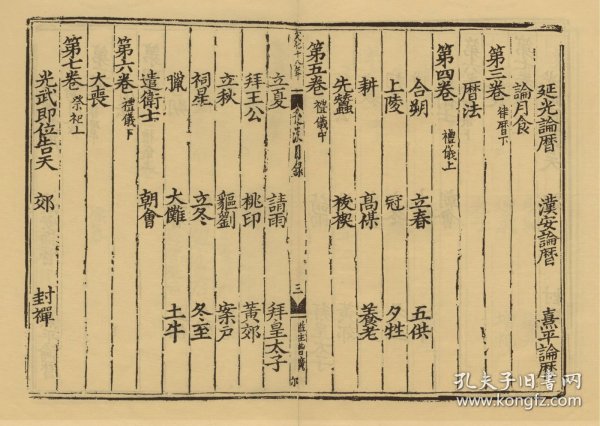 延光論曆　漢安論曆　熹平論曆
論月食
第三卷 律曆下
曆法
第四卷 禮儀上
合朔　立春　五供
上陵　冠　夕牲
耕　高禖　養老
先蠶　祓禊
第五卷 禮儀中
後漢目錄　三
立夏　請雨　拜皇太子
拜王公　桃印　黃郊
立秋　貙劉　案戶
祠星　立冬　冬至
臘　大儺　土牛
遣衛士　朝會
第六卷 禮儀下
大喪
第七卷 祭祀上
光武即位告天　郊　封禪
孔夫子旧书网
www.kongfz.com